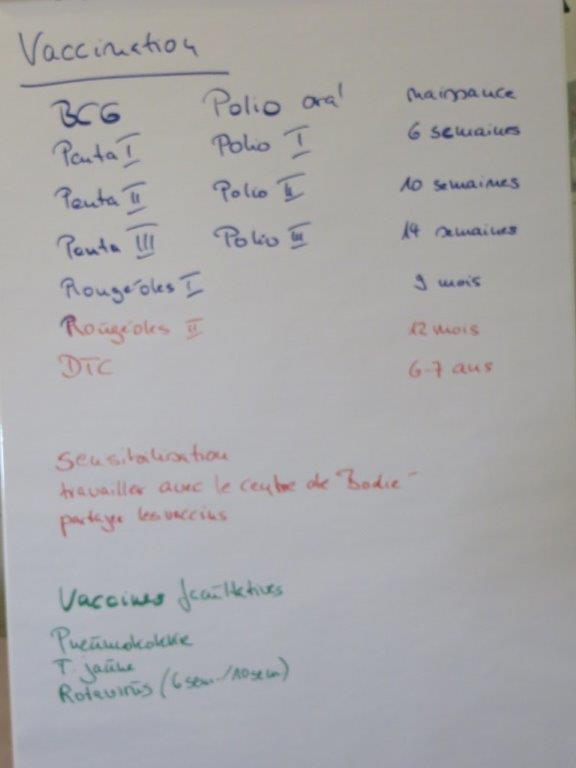 Vaccination
BCG Polio oral naissance
Penta I Polio I 6 semaines
Penta II Polio II 10 semaines
Penta III Polio III 14 semaines
Rougéoles I 9 mois
Rougéoles II 12 mois
DTC 6-7 ans
travailler avec le centre de Bodie
partager les vaccins
Vaccines facultatives
Pneumokokke
F. jaune
Rotavirus (6 sem./10 sem)